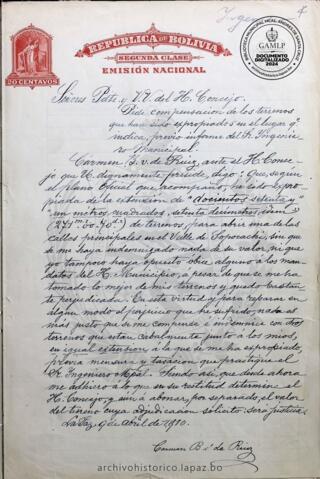 Ingen 4
REPUBLICA DE BOLIVIA
SEGUNDA CLASE
EMISIÓN NACIONAL
20 CENTAVOS
GAMLP
DOCUMENTO
DIGITALIZADO
2024
Señores Pdte. y V.V. del H. Concejo.
Pide compensación de los terrenos
que han sido expropiados en el lugar q'
indica, previo informe del Sr. Ingenie
ro Municipal.
Carmen B. v. de Ruiz, ante el H. Conce
jo que U. dignamente preside, digo: Que, según
el plano Oficial que acompaño, he sido expro
piada de la extensión de "doscientos setenta y
"un metros cuadrados, setenta decímetros idem"
de terrenos, para abrir una de las
calles principales en el Valle de Sopocachi, sin que
se me haya indemnizado nada de su valor, ni que
yo tampoco haya opuesto óbice alguno á los man
datos del H. Municipio, a pesar de que se me ha
tomado lo mejor de mis terrenos y quedo bastan
te perjudicada. En esta virtud y para reparar en
algun modo el perjuicio que he sufrido, nada es
más justo que se me compense é indemnice con dos
terrenos que están cabalmente junto a los mios,
en igual extensión á la que se me ha expropiado,
prévia mensura y tasación que practique el
Sr. Ingeniero Mpal. Siendo así que desde ahora
me adhiero a lo que en su rectitud determine el
H. Concejo, y aun a abonar, por separado, el valor
del terreno cuya adjudicación solicito. Será justicia.
La Paz, 9 de Abril de 1910.
Carmen B. v. de Ruiz
archivohistorico.lapaz.bo